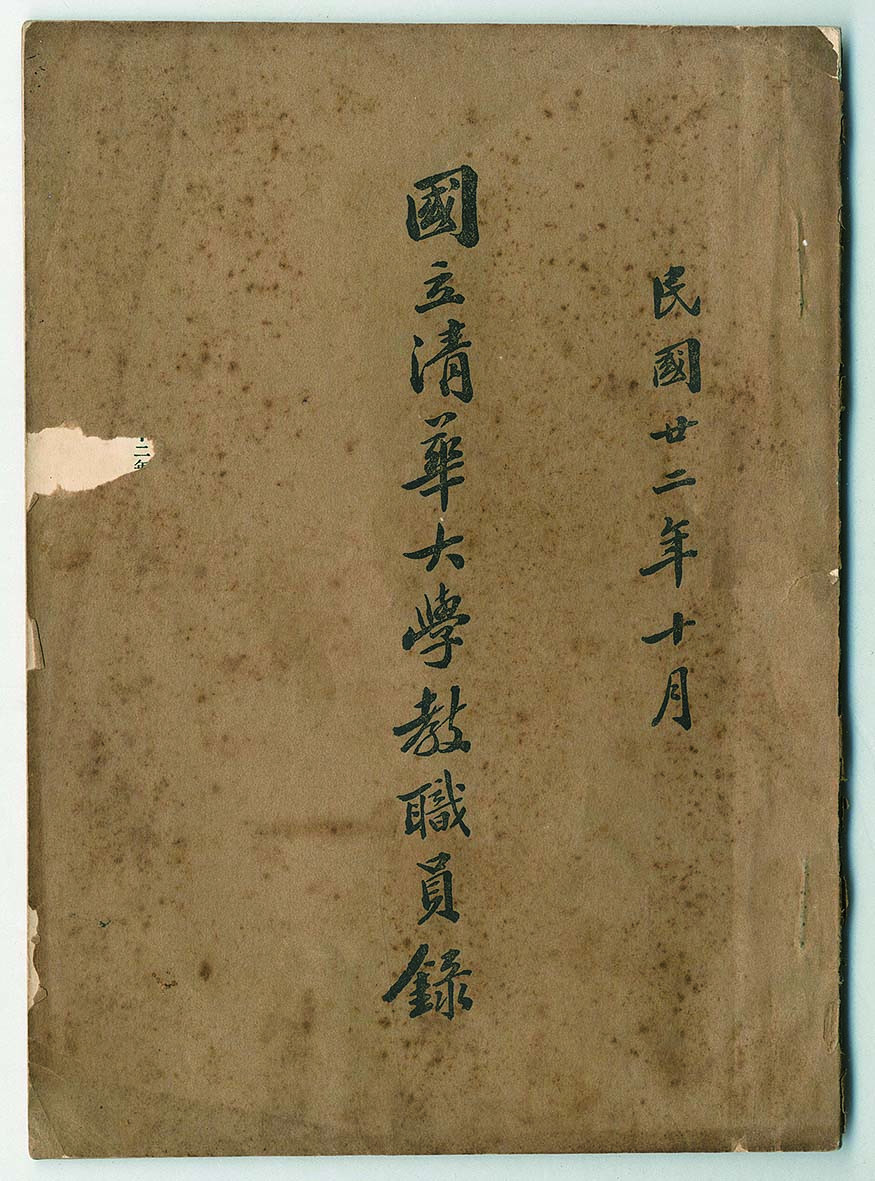 民國廿二年十月
國立清華大學教職員錄
二年